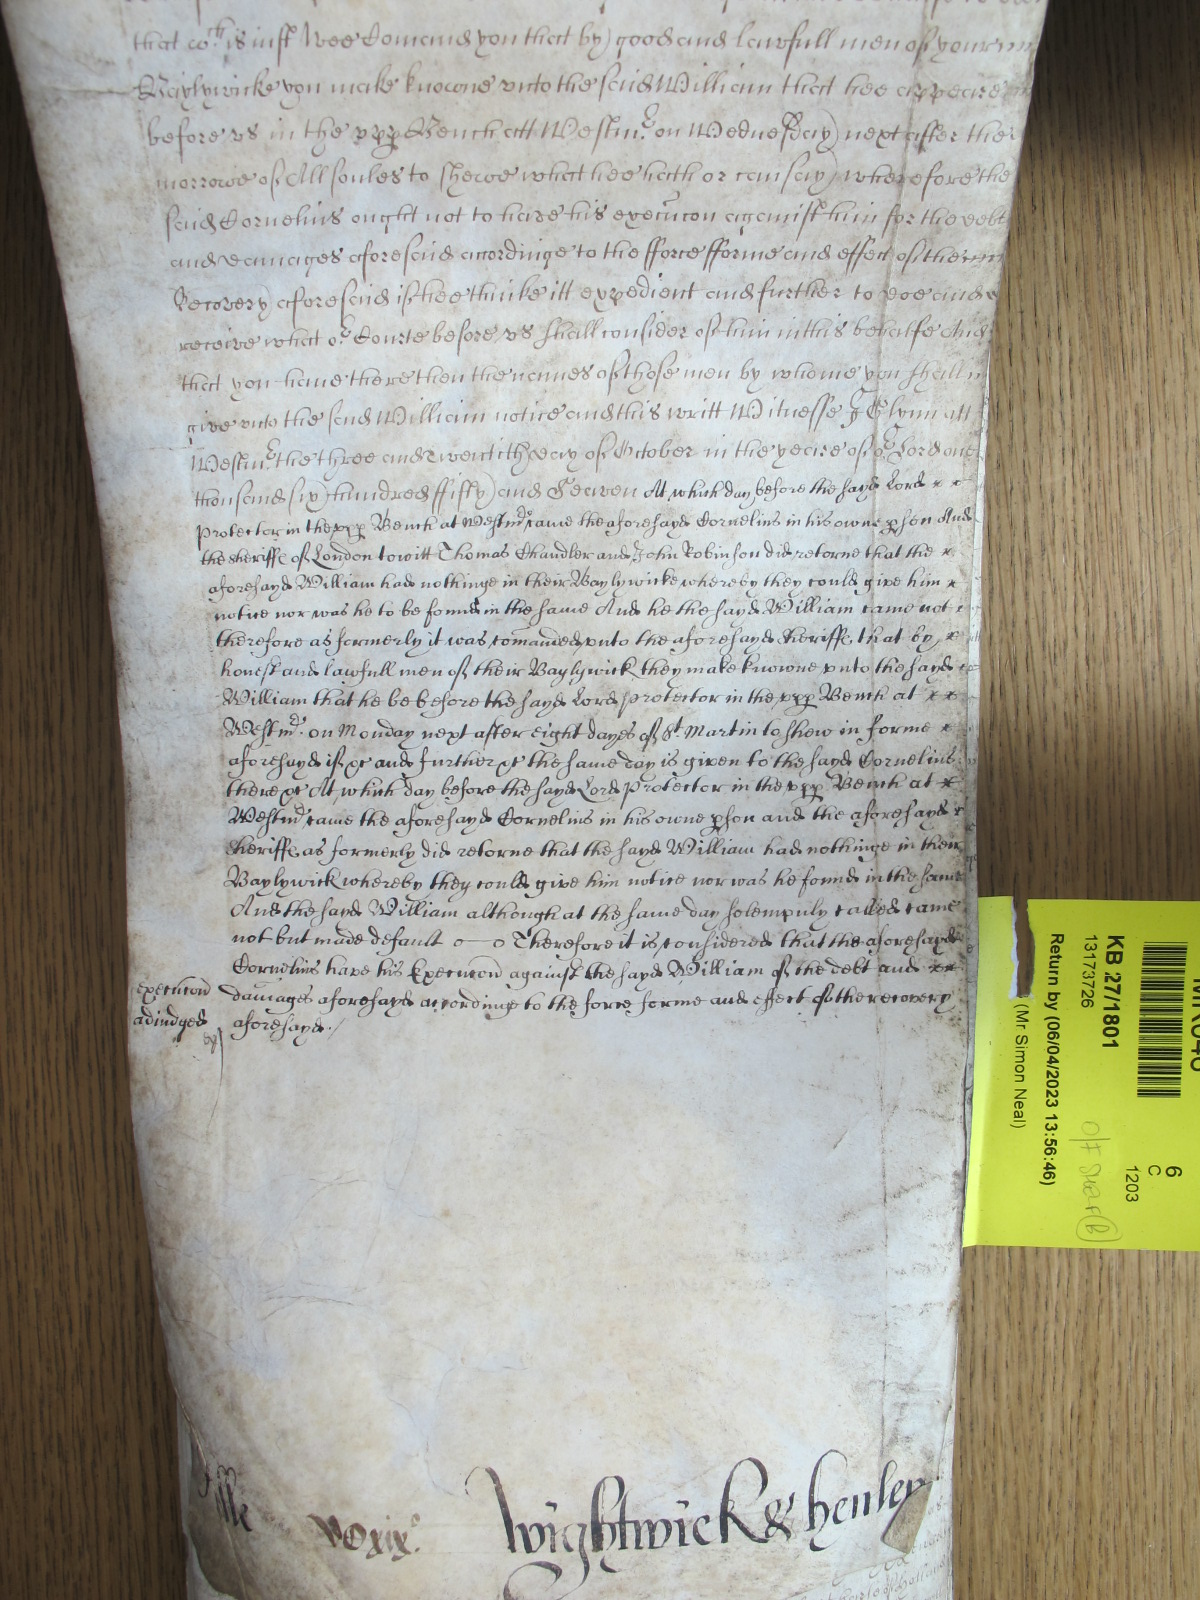 that wch is iust Wee Comand you that by good and lawfull men of your
Baylywicke you make knowne vnto the said William that hee appeare
before vs in the vpp Bench att Westmr on Wednesday next after the
morrowe of All soules to shewe what hee hath or can say wherefore the
said Cornelius ought not to have his execucon against him for the debt
and damages aforesaid accordinge to the fforce fforme and effect of the
Recovery aforesaid if hee thinke itt expedient and further to doe and
receive what or Courte before vs shall consider of him in this behalfe And
that you have there then the names of those men by whome you shall
give vnto the said William notice and this writt Witnesse J Glynn att
Westmr the three and twentith day of October in the yeare of or Lord one
thousand six hundred ffifty and Seaven At which day before the sayd Lord
Protector in the vpp Bench at Westmr came the aforesayd Cornelius in his owne pson And
the Sheriffe of London to witt Thomas Chandler and John Robinson did retorne that the
aforesayd William had nothinge in their Baylywicke whereby they could give him
notice nor was he to be found in the same And he the sayd William came not
therefore as formerly it was comanded vnto the aforesayd Sheriffe that by
honest and lawfull men of their Baylywick they make knowne vnto the sayd
William that he be before the sayd Lord Protector in the vpp Bench at
Westmr on Monday next after eight dayes of St Martin to shew in forme
aforesayd if &c and further &c the same day is given to the sayd Cornelius
there &c At which day before the sayd Lord Protector in the vpp Bench at
Westmr came the aforesayd Cornelius in his owne pson and the aforesayd
Sheriffe as formerly did retorne that the sayd William had nothinge in their
Baylywick whereby they could give him notice nor was he found in the same
And the sayd William although at the same day solempnly called came
not but made default Therefore it is considered that the aforesayd
Cornelius have his Execucon against the sayd William of the debt and
execucon
adiudged
damages aforesayd accordinge to the force forme and effect of the recovery
aforesayd
Wightwick & henley
KB 27/1801
13173726
Return by (06/04/2023 13:56:46)
(Mr Simon Neal)
6
C
1203